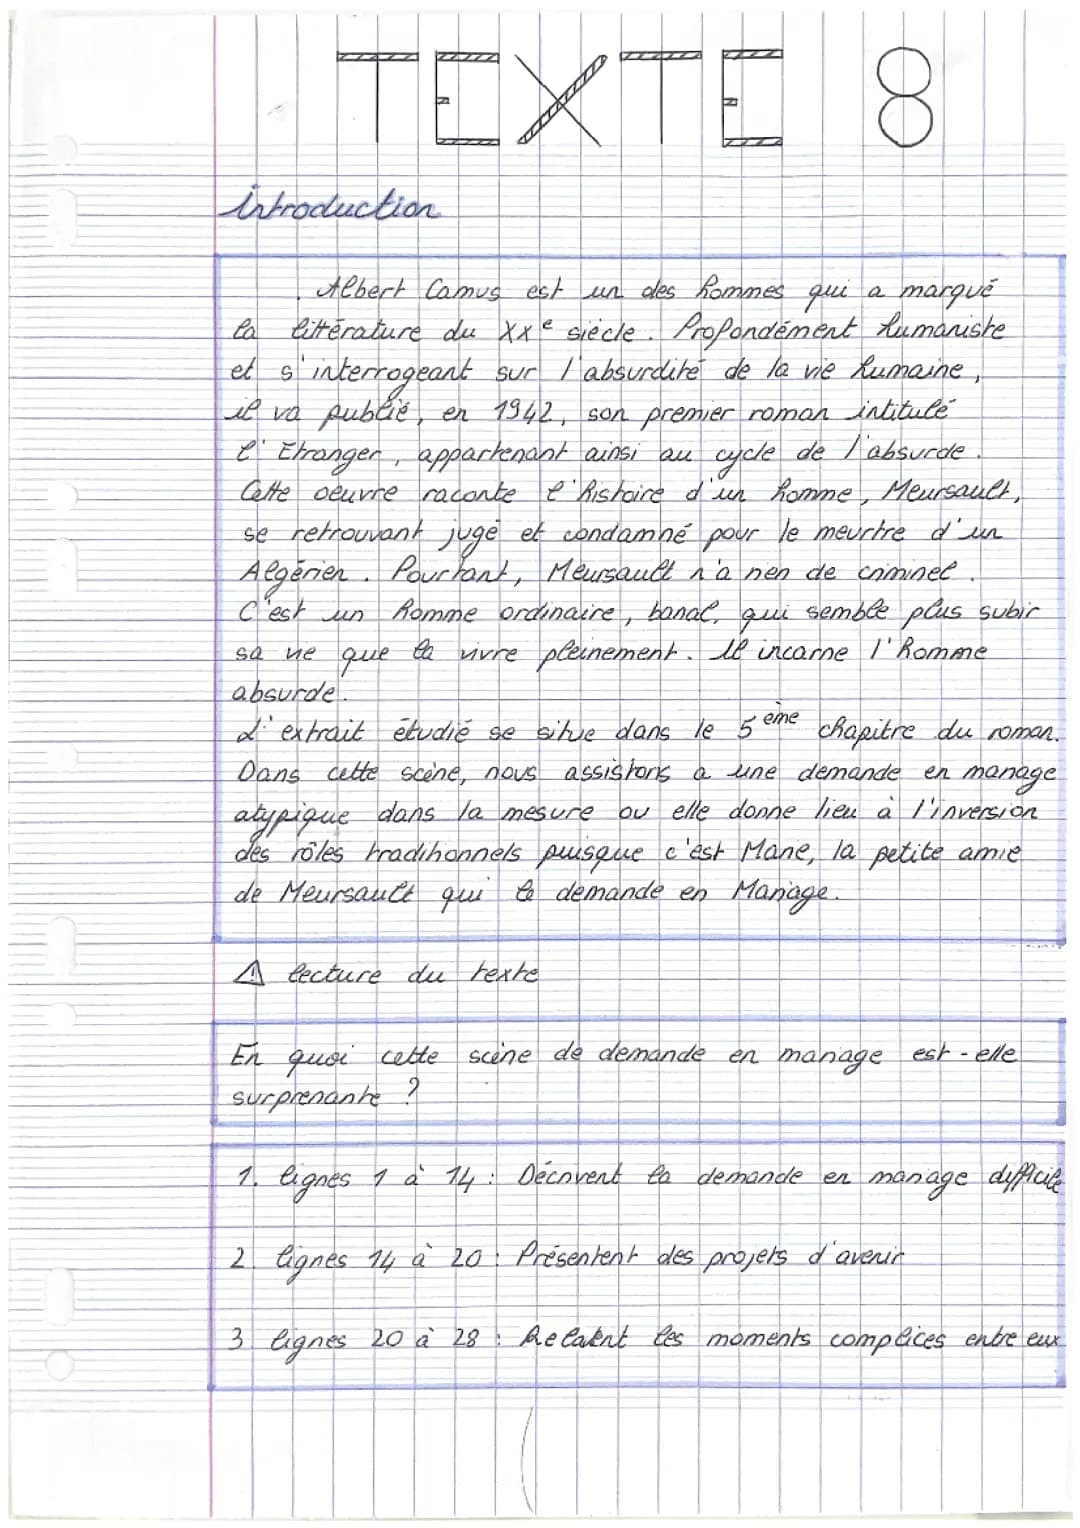 TEXTE 8
introduction
Albert Camus est un des hommes qui a marqué
la littérature du XXe siècle. Profondément humaniste
et s'interrogeant sur l'absurdité de la vie humaine,
il va publié, en 1942, son premier roman intitulé
l'Etranger, appartenant ainsi au cycle de l'absurde.
Cette oeuvre raconte l'histoire d'un homme, Meursault,
se retrouvant jugé et condamné pour le meurtre d'un
Algérien. Pourtant, Meursault n'a rien de criminel.
C'est un homme ordinaire, banal, qui semble plus subir
sa vie que la vivre pleinement. Il incarne l'homme
absurde.
L'extrait étudié se situe dans le 5ème chapitre du roman.
Dans cette scène, nous assistons a une demande en mariage
atypique dans la mesure ou elle donne lieu à l'inversion
des rôles traditionnels puisque c'est Marie, la petite amie
de Meursault qui le demande en Mariage.
⚠ lecture du texte
En quoi cette scène de demande en mariage est-elle
surprenante ?
1. lignes 1 à 14 : Décrivent la demande en mariage difficile
2. lignes 14 à 20 : Présentent des projets d'avenir
3 lignes 20 à 28 : Relatent les moments complices entre eux